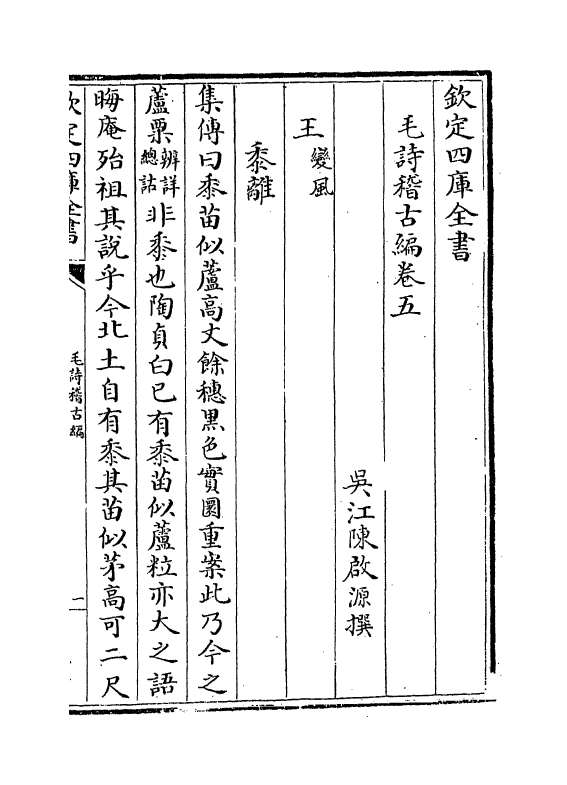 欽定四庫全書
毛詩稽古編卷五
吳江陳啟源撰
王 變風
黍離
集傳曰黍苗似蘆高丈餘穗黑色實圜重案此乃今之
蘆粟辨詳總詁非黍也陶貞白已有黍苗似蘆粒亦大之語
晦庵殆祖其說乎今北土自有黍其苗似茅高可二尺
欽定四庫全書
毛詩稽古編